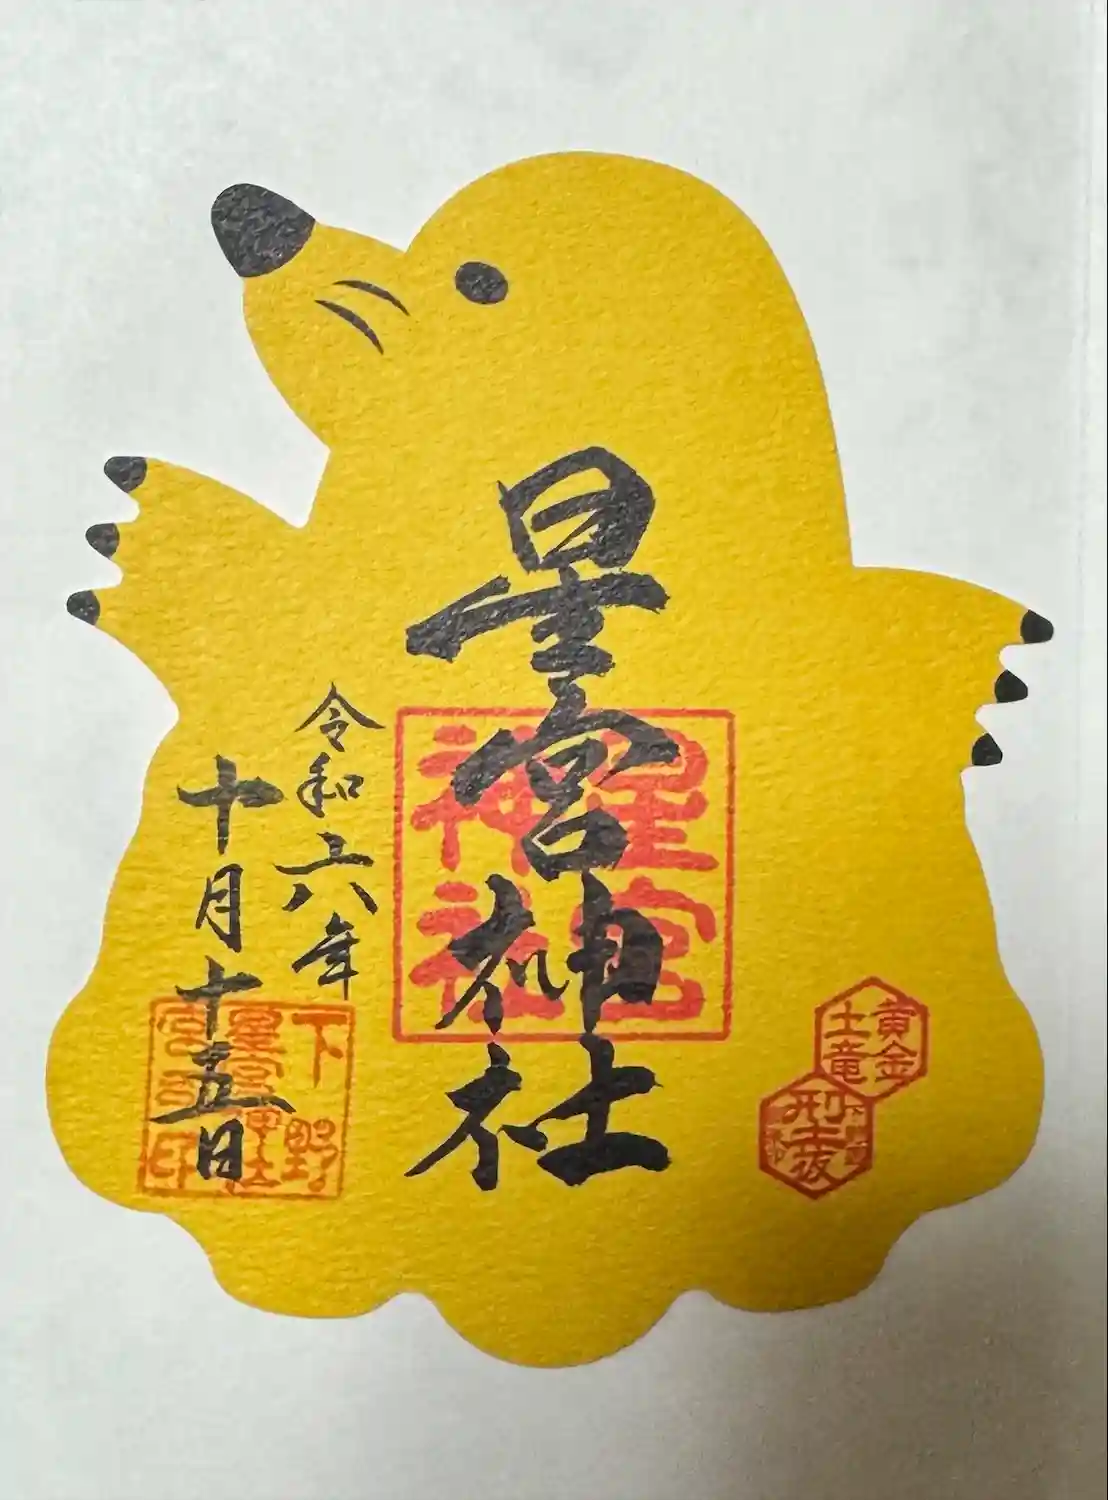 黄金
土竜
型抜
星宮神社
星宮
神社
令和六年
十月十五日
下野
星宮神社
宮司印